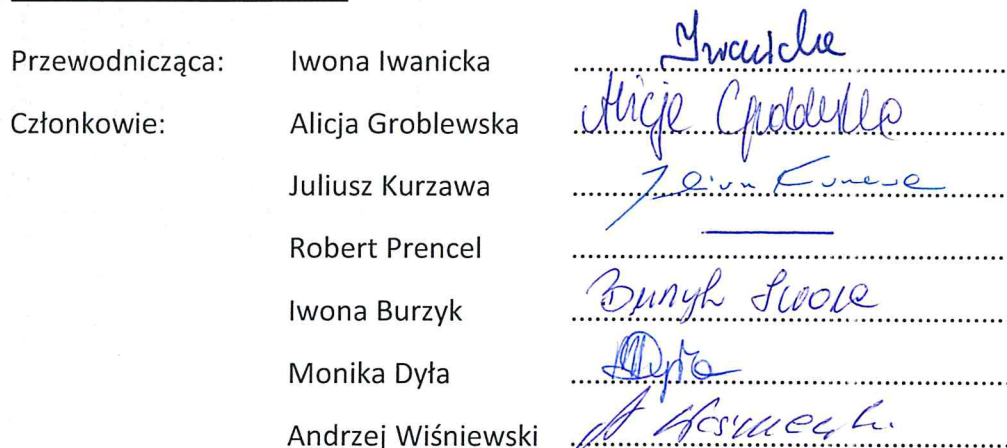 Przewodnicząca: Iwona Iwanicka Iwanicka
Członkowie: Alicja Groblewska Alicja
Juliusz Kurzawa
Robert Prencel
Iwona Burzyk Burzyk Iwona
Monika Dyła Dyła
Andrzej Wiśniewski A